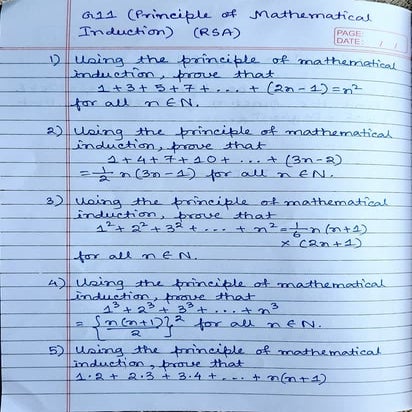 Q11 (Principle of Mathematical
Induction) (RSA)
PAGE:
DATE: / /
1) Using the principle of mathematical
induction, prove that
1+3+5+7+....+(2n-1)=n²
for all n∈N.
2) Using the principle of mathematical
induction, prove that
1+4+7+10+...+(3n-2)
=½n(3n-1) for all n∈N.
3) Using the principle of mathematical
induction, prove that
1²+2²+3²+...+n²=⅙n(n+1)
×(2n+1)
for all n∈N.
4) Using the principle of mathematical
induction, prove that
1³+2³+3³+...+n³
={n(n+1)/2}² for all n∈N.
5) Using the principle of mathematical
induction, prove that
1·2+2·3+3·4+...+n(n+1)